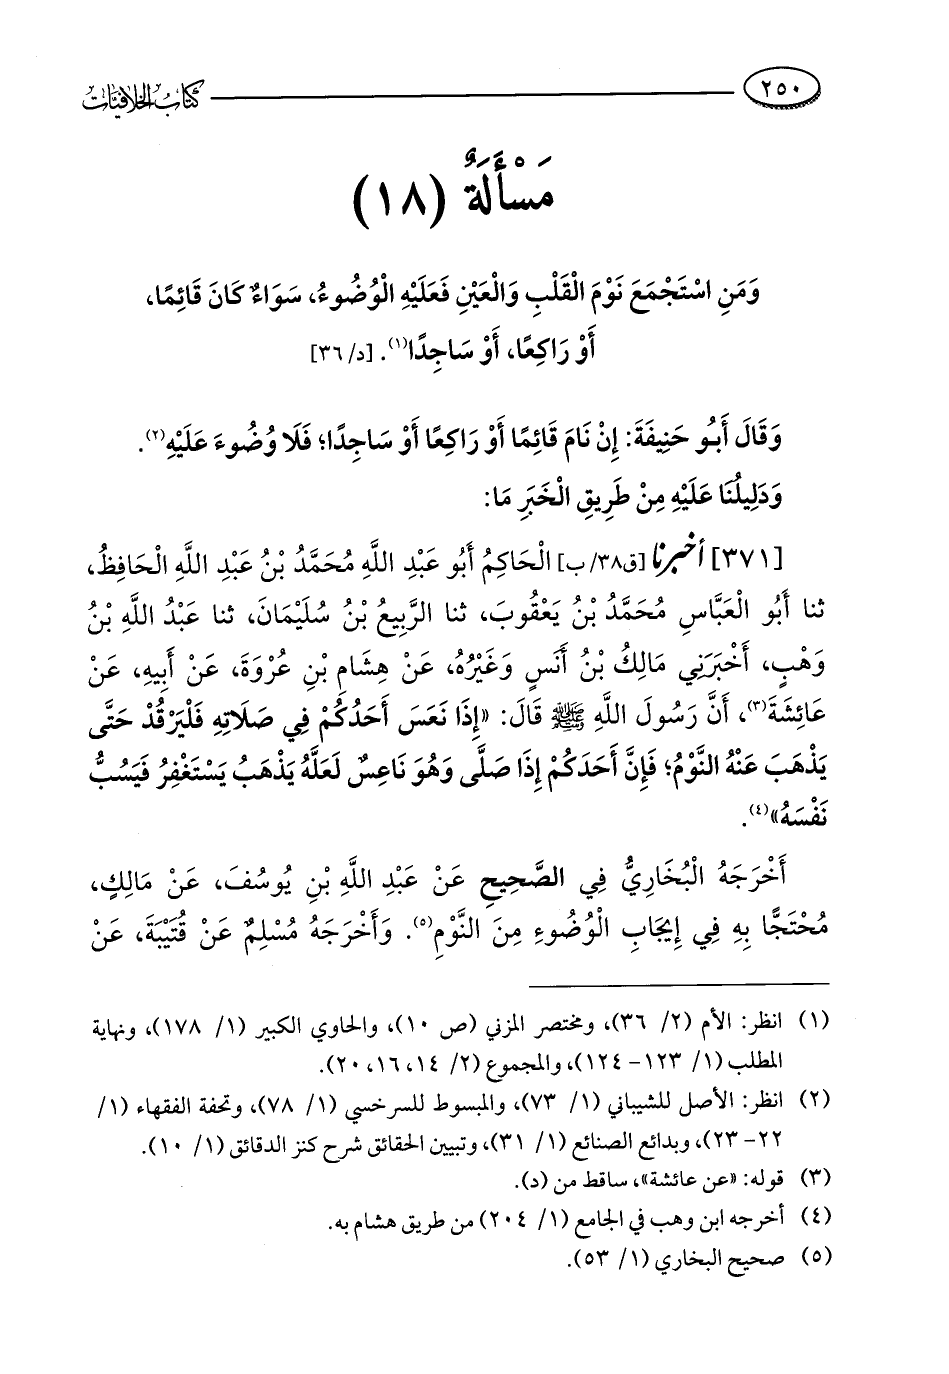 ٢٥٠ كتاب الخلافيات
مَسْأَلَةٌ (١٨)
وَمَنِ اسْتَجْمَعَ نَوْمَ الْقَلْبِ وَالْعَيْنِ فَعَلَيْهِ الْوُضُوءُ، سَوَاءٌ كَانَ قَائِمًا،
أَوْ رَاكِعًا، أَوْ سَاجِدًا(١). [د/٣٦]
وَقَالَ أَبُو حَنِيفَةَ: إِنْ نَامَ قَائِمًا أَوْ رَاكِعًا أَوْ سَاجِدًا؛ فَلَا وُضُوءَ عَلَيْهِ(٢).
وَدَلِيلُنَا عَلَيْهِ مِنْ طَرِيقِ الْخَبَرِ مَا:
[٣٧١] أخبرنا [ق٣٨/ب] الْحَاكِمُ أَبُو عَبْدِ اللَّهِ مُحَمَّدُ بْنُ عَبْدِ اللَّهِ الْحَافِظُ،
ثنا أَبُو الْعَبَّاسِ مُحَمَّدُ بْنُ يَعْقُوبَ، ثنا الرَّبِيعُ بْنُ سُلَيْمَانَ، ثنا عَبْدُ اللَّهِ بْنُ
وَهْبٍ، أَخْبَرَنِي مَالِكُ بْنُ أَنَسٍ وَغَيْرُهُ، عَنْ هِشَامِ بْنِ عُرْوَةَ، عَنْ أَبِيهِ، عَنْ
عَائِشَةَ(٣)، أَنَّ رَسُولَ اللَّهِ ﷺ قَالَ: «إِذَا نَعَسَ أَحَدُكُمْ فِي صَلَاتِهِ فَلْيَرْقُدْ حَتَّى
يَذْهَبَ عَنْهُ النَّوْمُ؛ فَإِنَّ أَحَدَكُمْ إِذَا صَلَّى وَهُوَ نَاعِسٌ لَعَلَّهُ يَذْهَبُ يَسْتَغْفِرُ فَيَسُبُّ
نَفْسَهُ»(٤).
أَخْرَجَهُ الْبُخَارِيُّ فِي الصَّحِيحِ عَنْ عَبْدِ اللَّهِ بْنِ يُوسُفَ، عَنْ مَالِكٍ،
مُحْتَجًّا بِهِ فِي إِيجَابِ الْوُضُوءِ مِنَ النَّوْمِ(٥). وَأَخْرَجَهُ مُسْلِمٌ عَنْ قُتَيْبَةَ، عَنْ
(١) انظر: الأم (٢/ ٣٦)، ومختصر المزني (ص ١٠)، والحاوي الكبير (١/ ١٧٨)، ونهاية
المطلب (١/ ١٢٣ - ١٢٤)، والمجموع (٢/ ١٤، ١٦، ٢٠).
(٢) انظر: الأصل للشيباني (١/ ٧٣)، والمبسوط للسرخسي (١/ ٧٨)، وتحفة الفقهاء (١/
٢٢ - ٢٣)، وبدائع الصنائع (١/ ٣١)، وتبيين الحقائق شرح كنز الدقائق (١/ ١٠).
(٣) قوله: «عن عائشة»، ساقط من (د).
(٤) أخرجه ابن وهب في الجامع (١/ ٢٠٤) من طريق هشام به.
(٥) صحيح البخاري (١/ ٥٣).